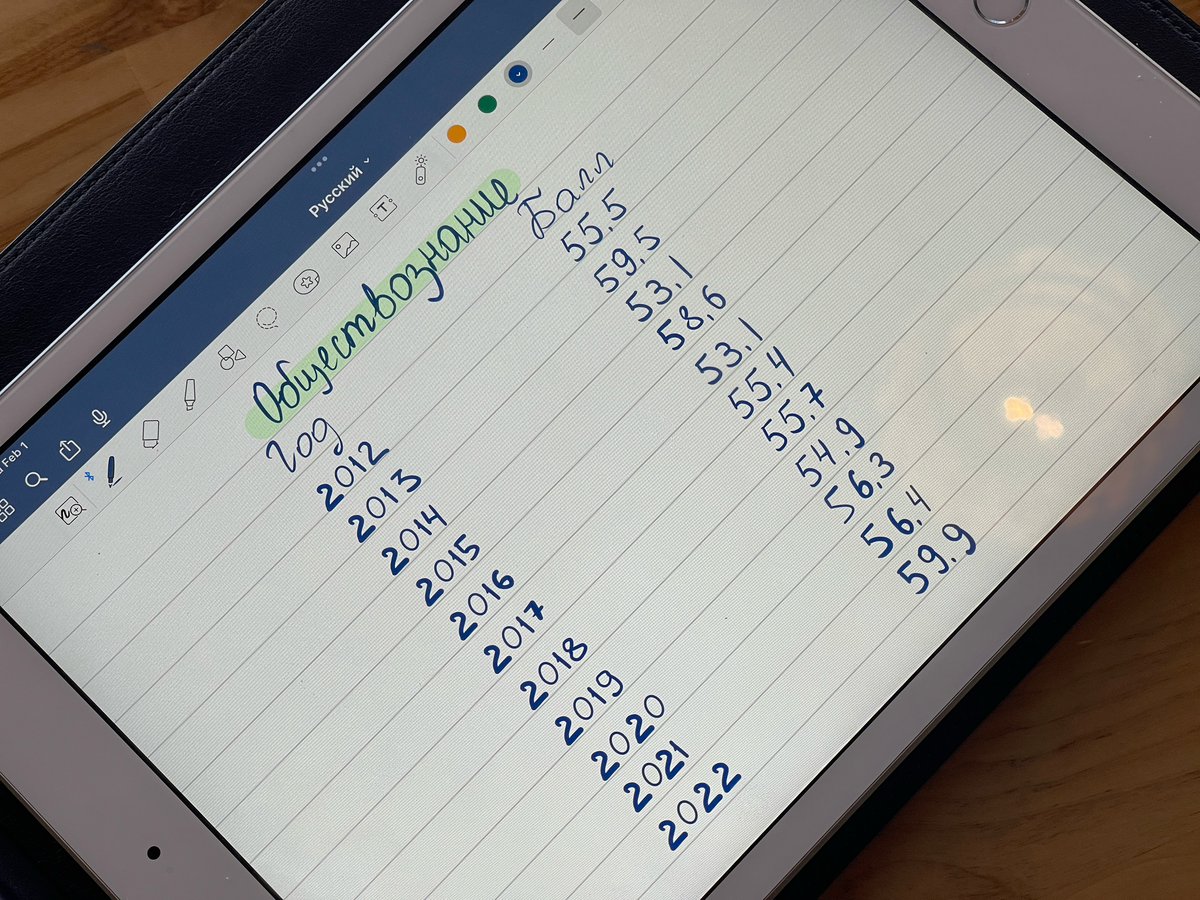 a Feb 1
Русский
Обществознание
Год Балл
2012 55.5
2013 59.5
2014 53.1
2015 58.6
2016 53.1
2017 55.4
2018 55.7
2019 54.9
2020 56.3
2021 56.4
2022 59.9